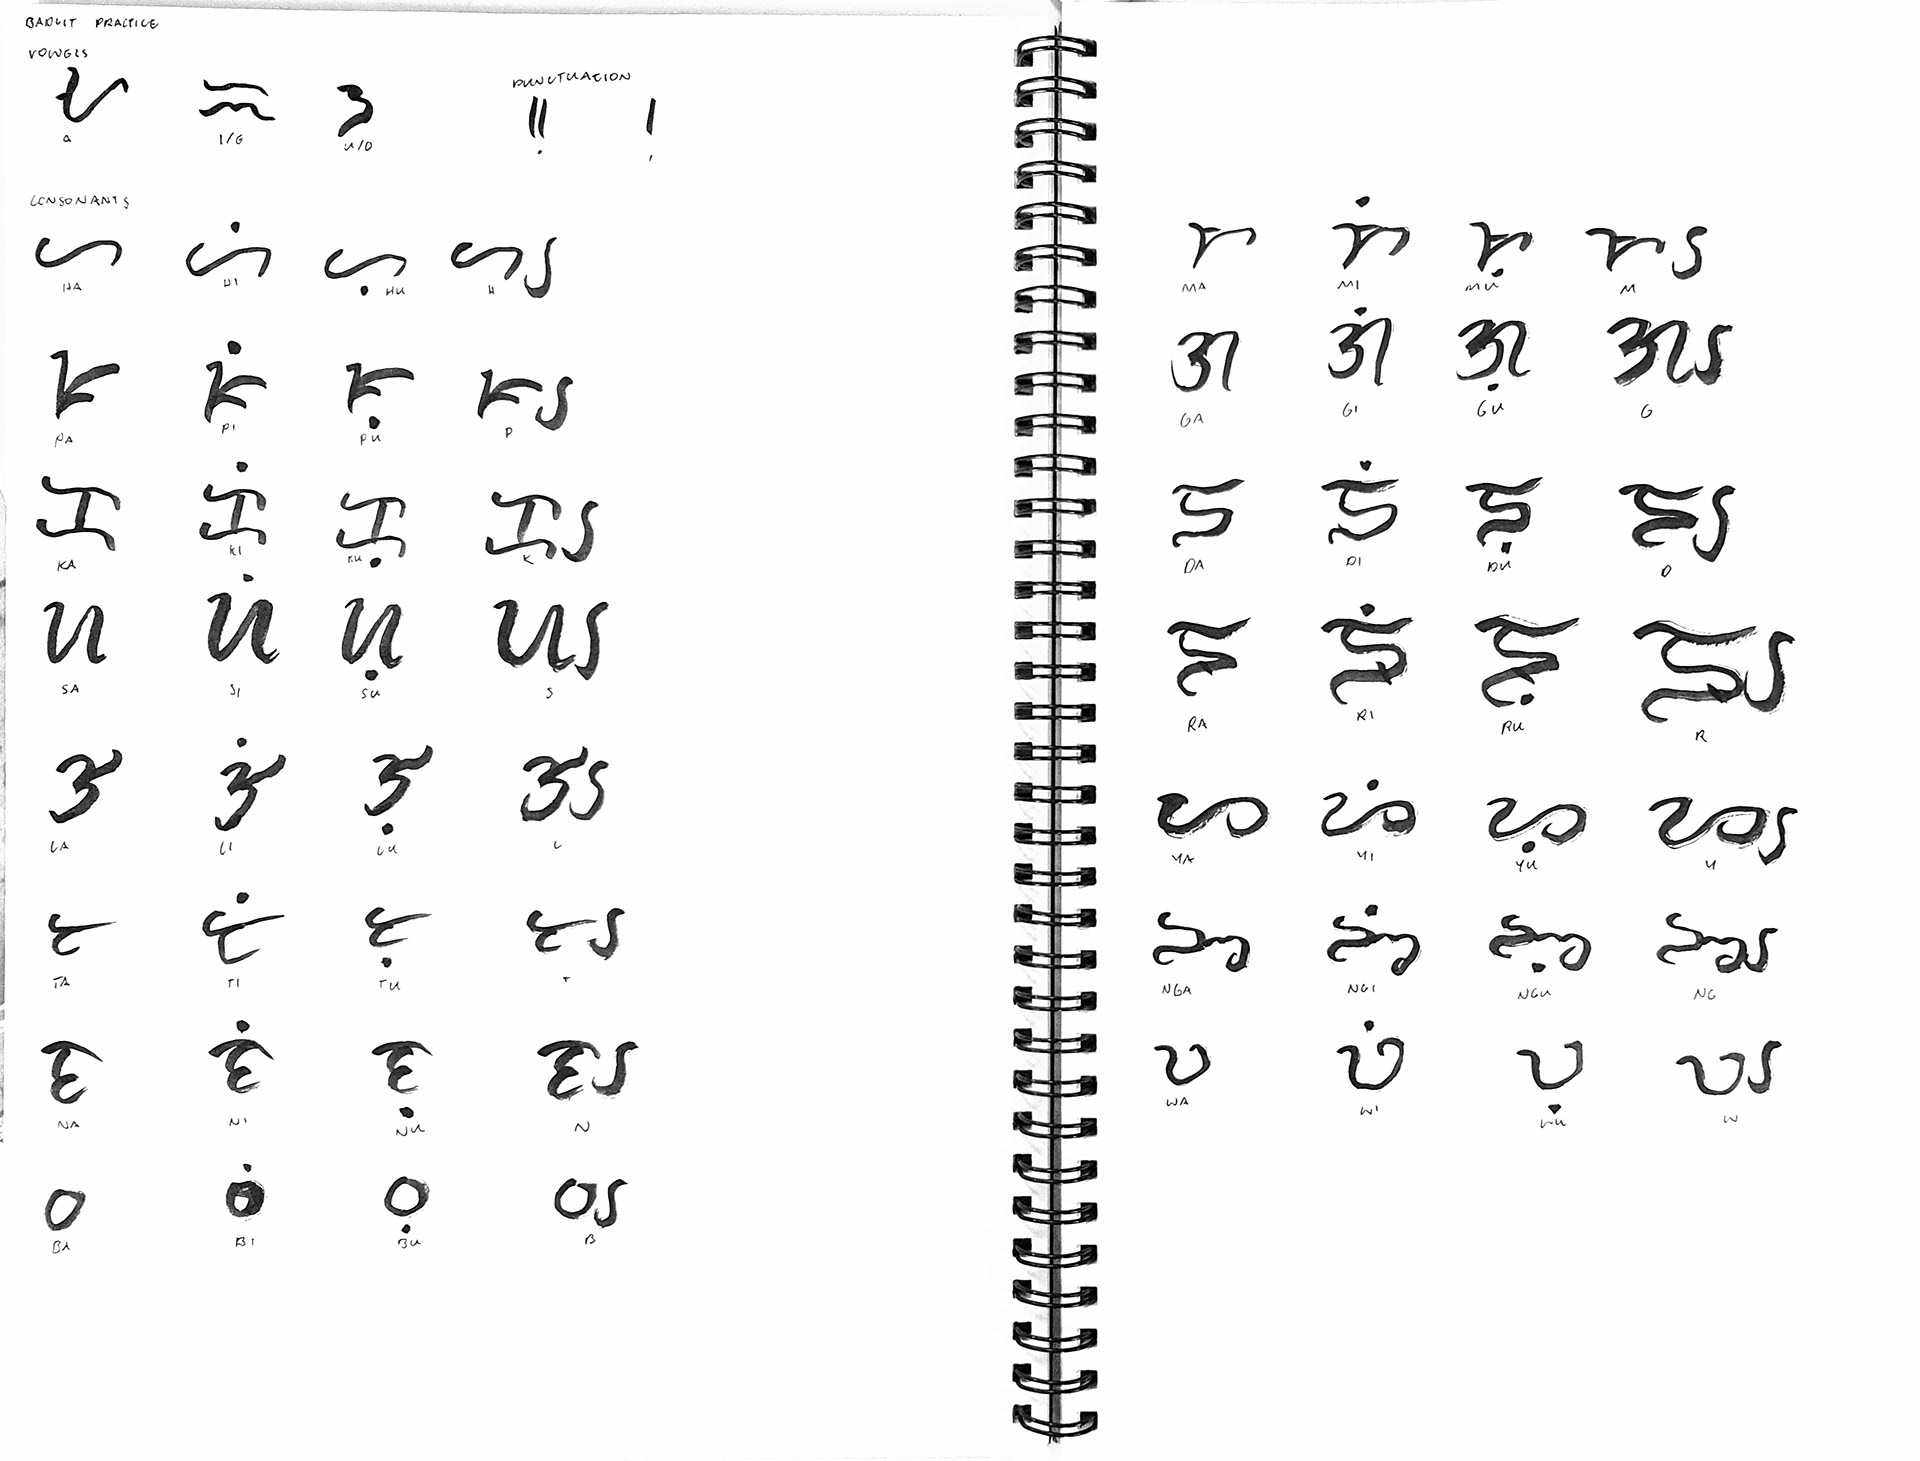 BADLIT PRACTICE
VOWELS
PUNCTUATION
ᜀ ᜁ ᜂ ᜶ ᜵
A I/E U/O . ,
CONSONANTS
ᜑ ᜑᜒ ᜑᜓ ᜑ᜕
HA HI HU H
ᜉ ᜉᜒ ᜉᜓ ᜉ᜕
PA PI PU P
ᜃ ᜃᜒ ᜃᜓ ᜃ᜕
KA KI KU K
ᜐ ᜐᜒ ᜐᜓ ᜐ᜕
SA SI SU S
ᜎ ᜎᜒ ᜎᜓ ᜎ᜕
LA LI LU L
ᜆ ᜆᜒ ᜆᜓ ᜆ᜕
TA TI TU T
ᜈ ᜈᜒ ᜈᜓ ᜈ᜕
NA NI NU N
ᜊ ᜊᜒ ᜊᜓ ᜊ᜕
BA BI BU B
ᜋ ᜋᜒ ᜋᜓ ᜋ᜕
MA MI MU M
ᜄ ᜄᜒ ᜄᜓ ᜄ᜕
GA GI GU G
ᜇ ᜇᜒ ᜇᜓ ᜇ᜕
DA DI DU D
ᜍ ᜍᜒ ᜍᜓ ᜍ᜕
RA RI RU R
ᜌ ᜌᜒ ᜌᜓ ᜌ᜕
YA YI YU Y
ᜅ ᜅᜒ ᜅᜓ ᜅ᜕
NGA NGI NGU NG
ᜏ ᜏᜒ ᜏᜓ ᜏ᜕
WA WI WU W